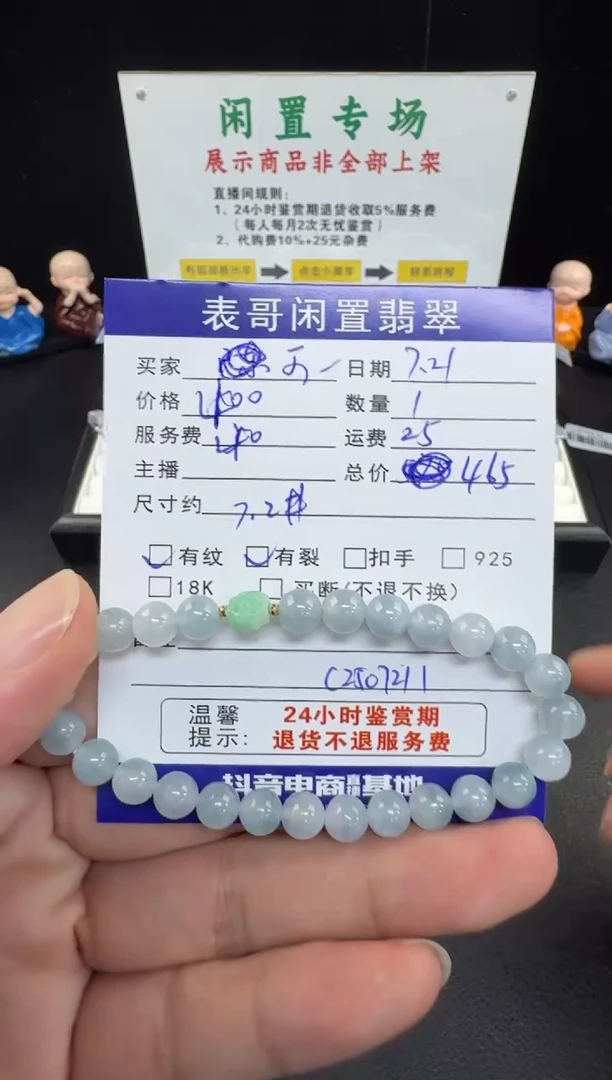 闲置专场
展示商品非全部上架
直播间规则:
1、24小时鉴赏期退货收取5%服务费
(每人每月2次无忧鉴赏)
2、代购费10%+25元杂费
表哥闲置翡翠
买家 日期 7.21
价格 400 数量 1
服务费 40 运费 25
主播 总价 465
尺寸约 7.2#
有纹 有裂 扣手 925
18K 买断(不退不换)
C2507211
温馨提示: 24小时鉴赏期
退货不退服务费
抖音电商 基地